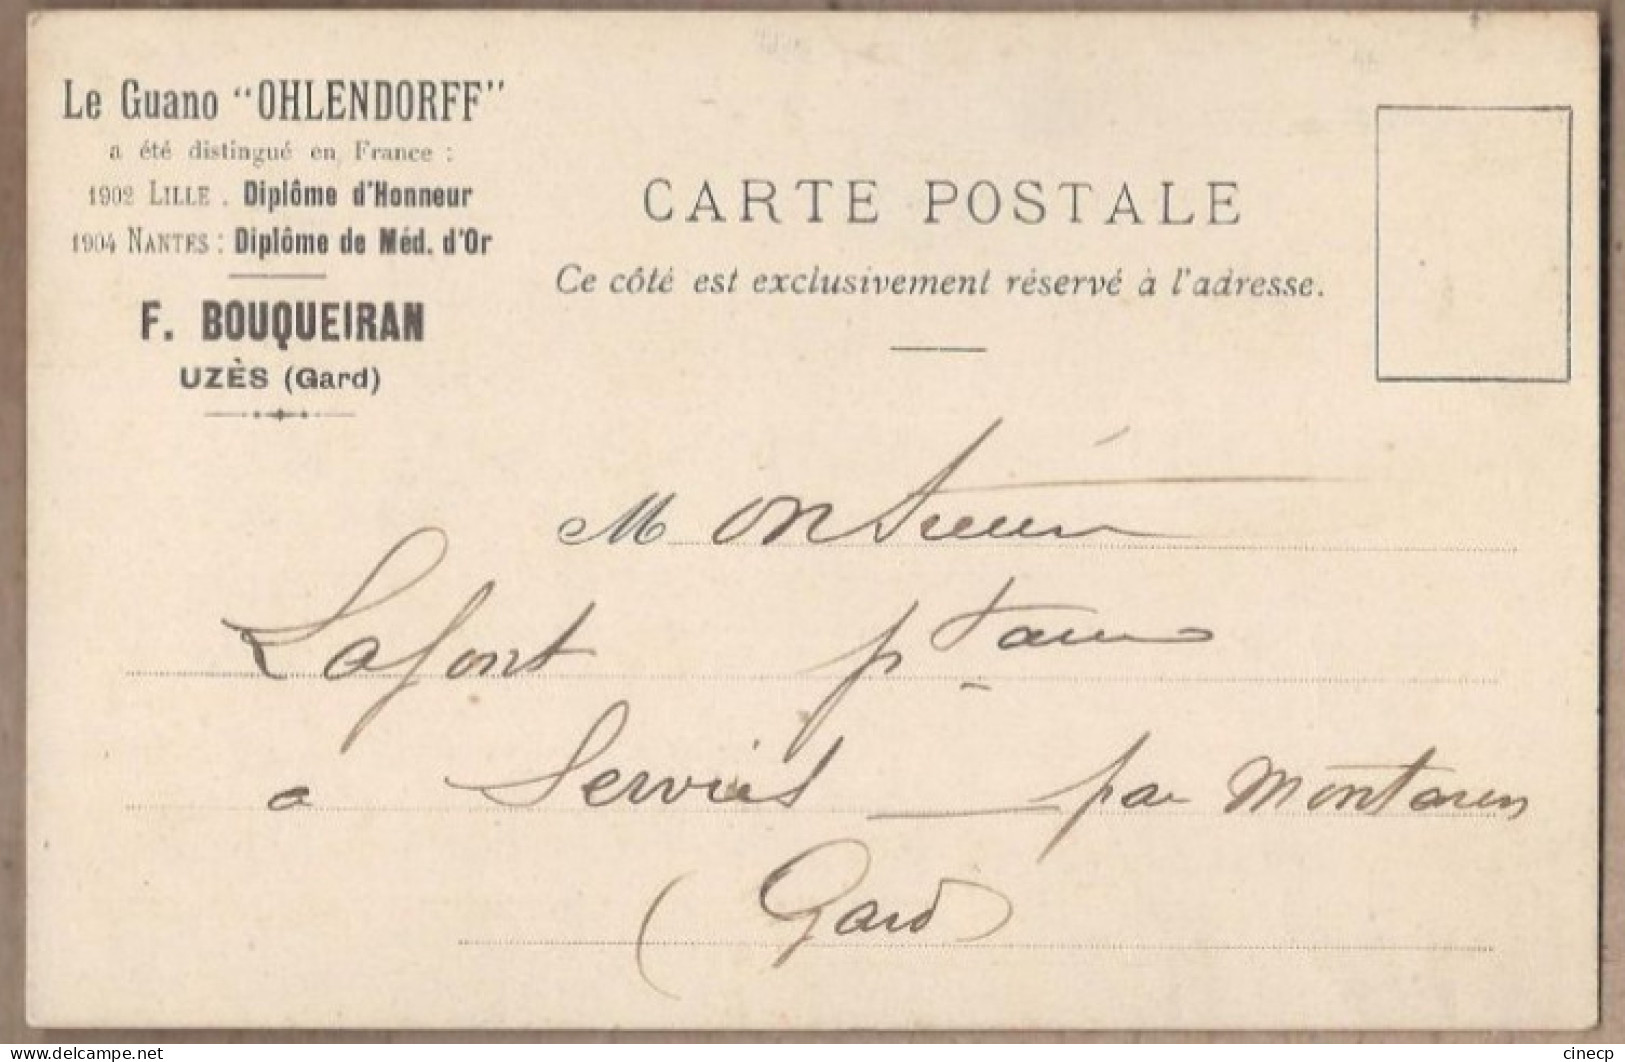 Le Guano "OHLENDORFF"
a été distingué en France :
1902 LILLE . Diplôme d'Honneur
1904 NANTES : Diplôme de Méd. d'Or
F. BOUQUEIRAN
UZÈS (Gard)
CARTE POSTALE
Ce côté est exclusivement réservé à l'adresse.
Monsieur
Lafont ptaire
a Serviès par Montaren
(Gard)
delcampe.net
cinecp